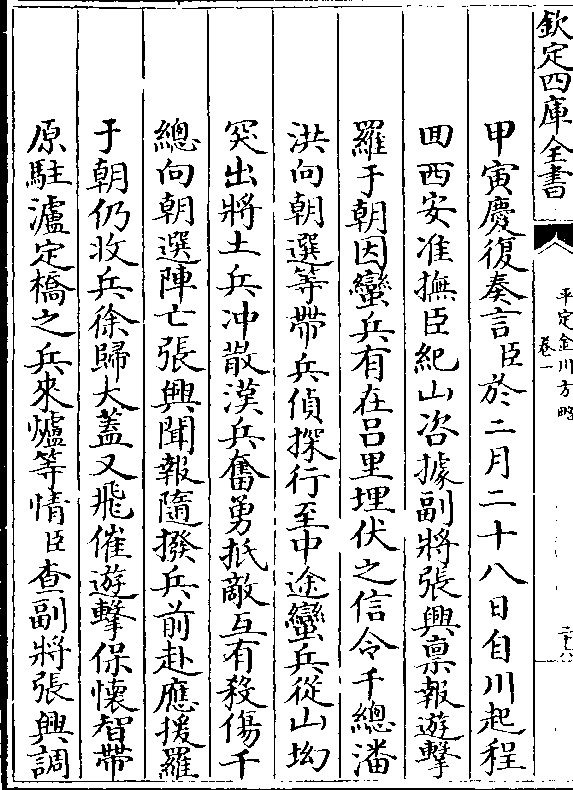 欽定四庫全書
平定金川方略
卷一
二十六
甲寅慶復奏言臣於二月二十八日自川起程
回西安准撫臣紀山咨據副將張興禀報遊擊
羅于朝因蠻兵有在吕里埋伏之信令千總潘
洪向朝選等帶兵偵探行至中途蠻兵從山坳
突出將土兵冲散漢兵奮勇抵敵互有殺傷千
總向朝選陣亡張興聞報隨撥兵前赴應援羅
于朝仍收兵徐歸大蓋又飛催遊擊保懷智帶
原駐瀘定橋之兵來爐等情臣查副將張興調